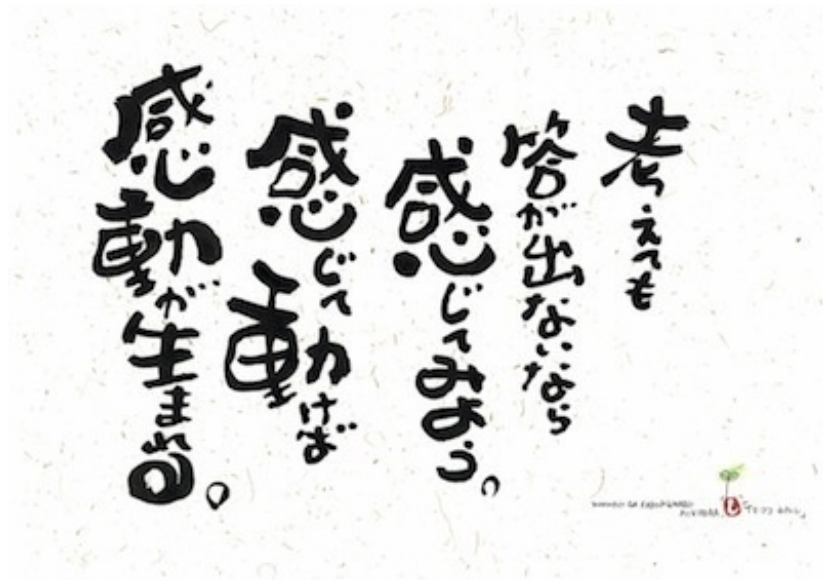 考えても
答が出ないなら
感じてみよう。
感じて動けば
感動が生まれる。